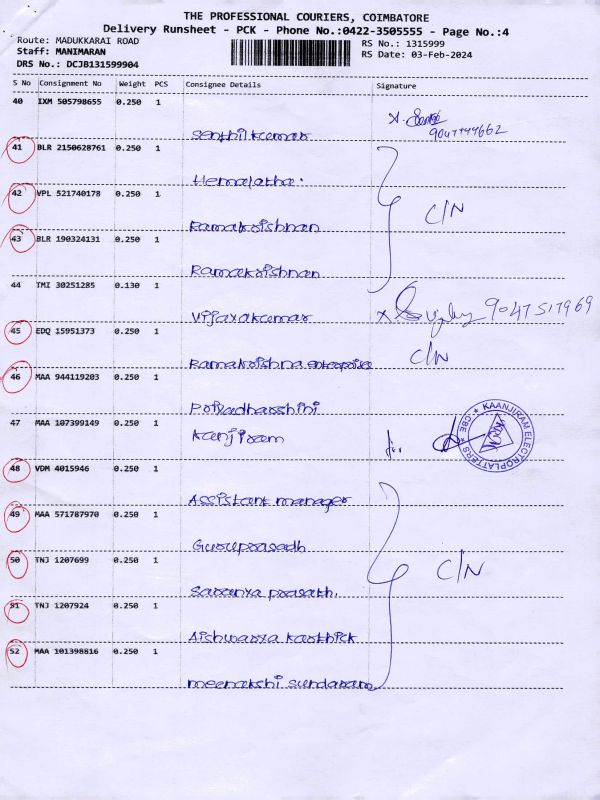 THE PROFESSIONAL COURIERS, COIMBATORE
Delivery Runsheet - PCK - Phone No.:0422-3505555 - Page No.:4
Route: MADUKKARAI ROAD
RS No.: 1315999
Staff: MANIMARAN
RS Date: 03-Feb-2024
DRS No.: DCJB131599904
S No Consignment No Weight PCS Consignee Details Signature
40 IXM 505798655 0.250 1
Senthil kumar
9047444662
41 BLR 2150628761 0.250 1
Hemalatha.
42 VPL 521740178 0.250 1
C/N
Ramakrishnan
43 BLR 190324131 0.250 1
Ramakrishnan
44 TMI 30251285 0.130 1
Vijayakumar
9047517969
45 EDQ 15951373 0.250 1
C/N
Ramakrishna enterprises
46 MAA 944119203 0.250 1
Priyadharshini
47 MAA 107399149 0.250 1
Kanjiram
for
KAANJIRAM ELECTROPLATTERS
CBE
48 VDM 4015946 0.250 1
Assistant manager
49 MAA 571787970 0.250 1
Guruprasadh
50 TNJ 1207699 0.250 1
C/N
Saranya prasath.
51 TNJ 1207924 0.250 1
Aishwarya Karthick
52 MAA 101398816 0.250 1
meenakshi sundaram